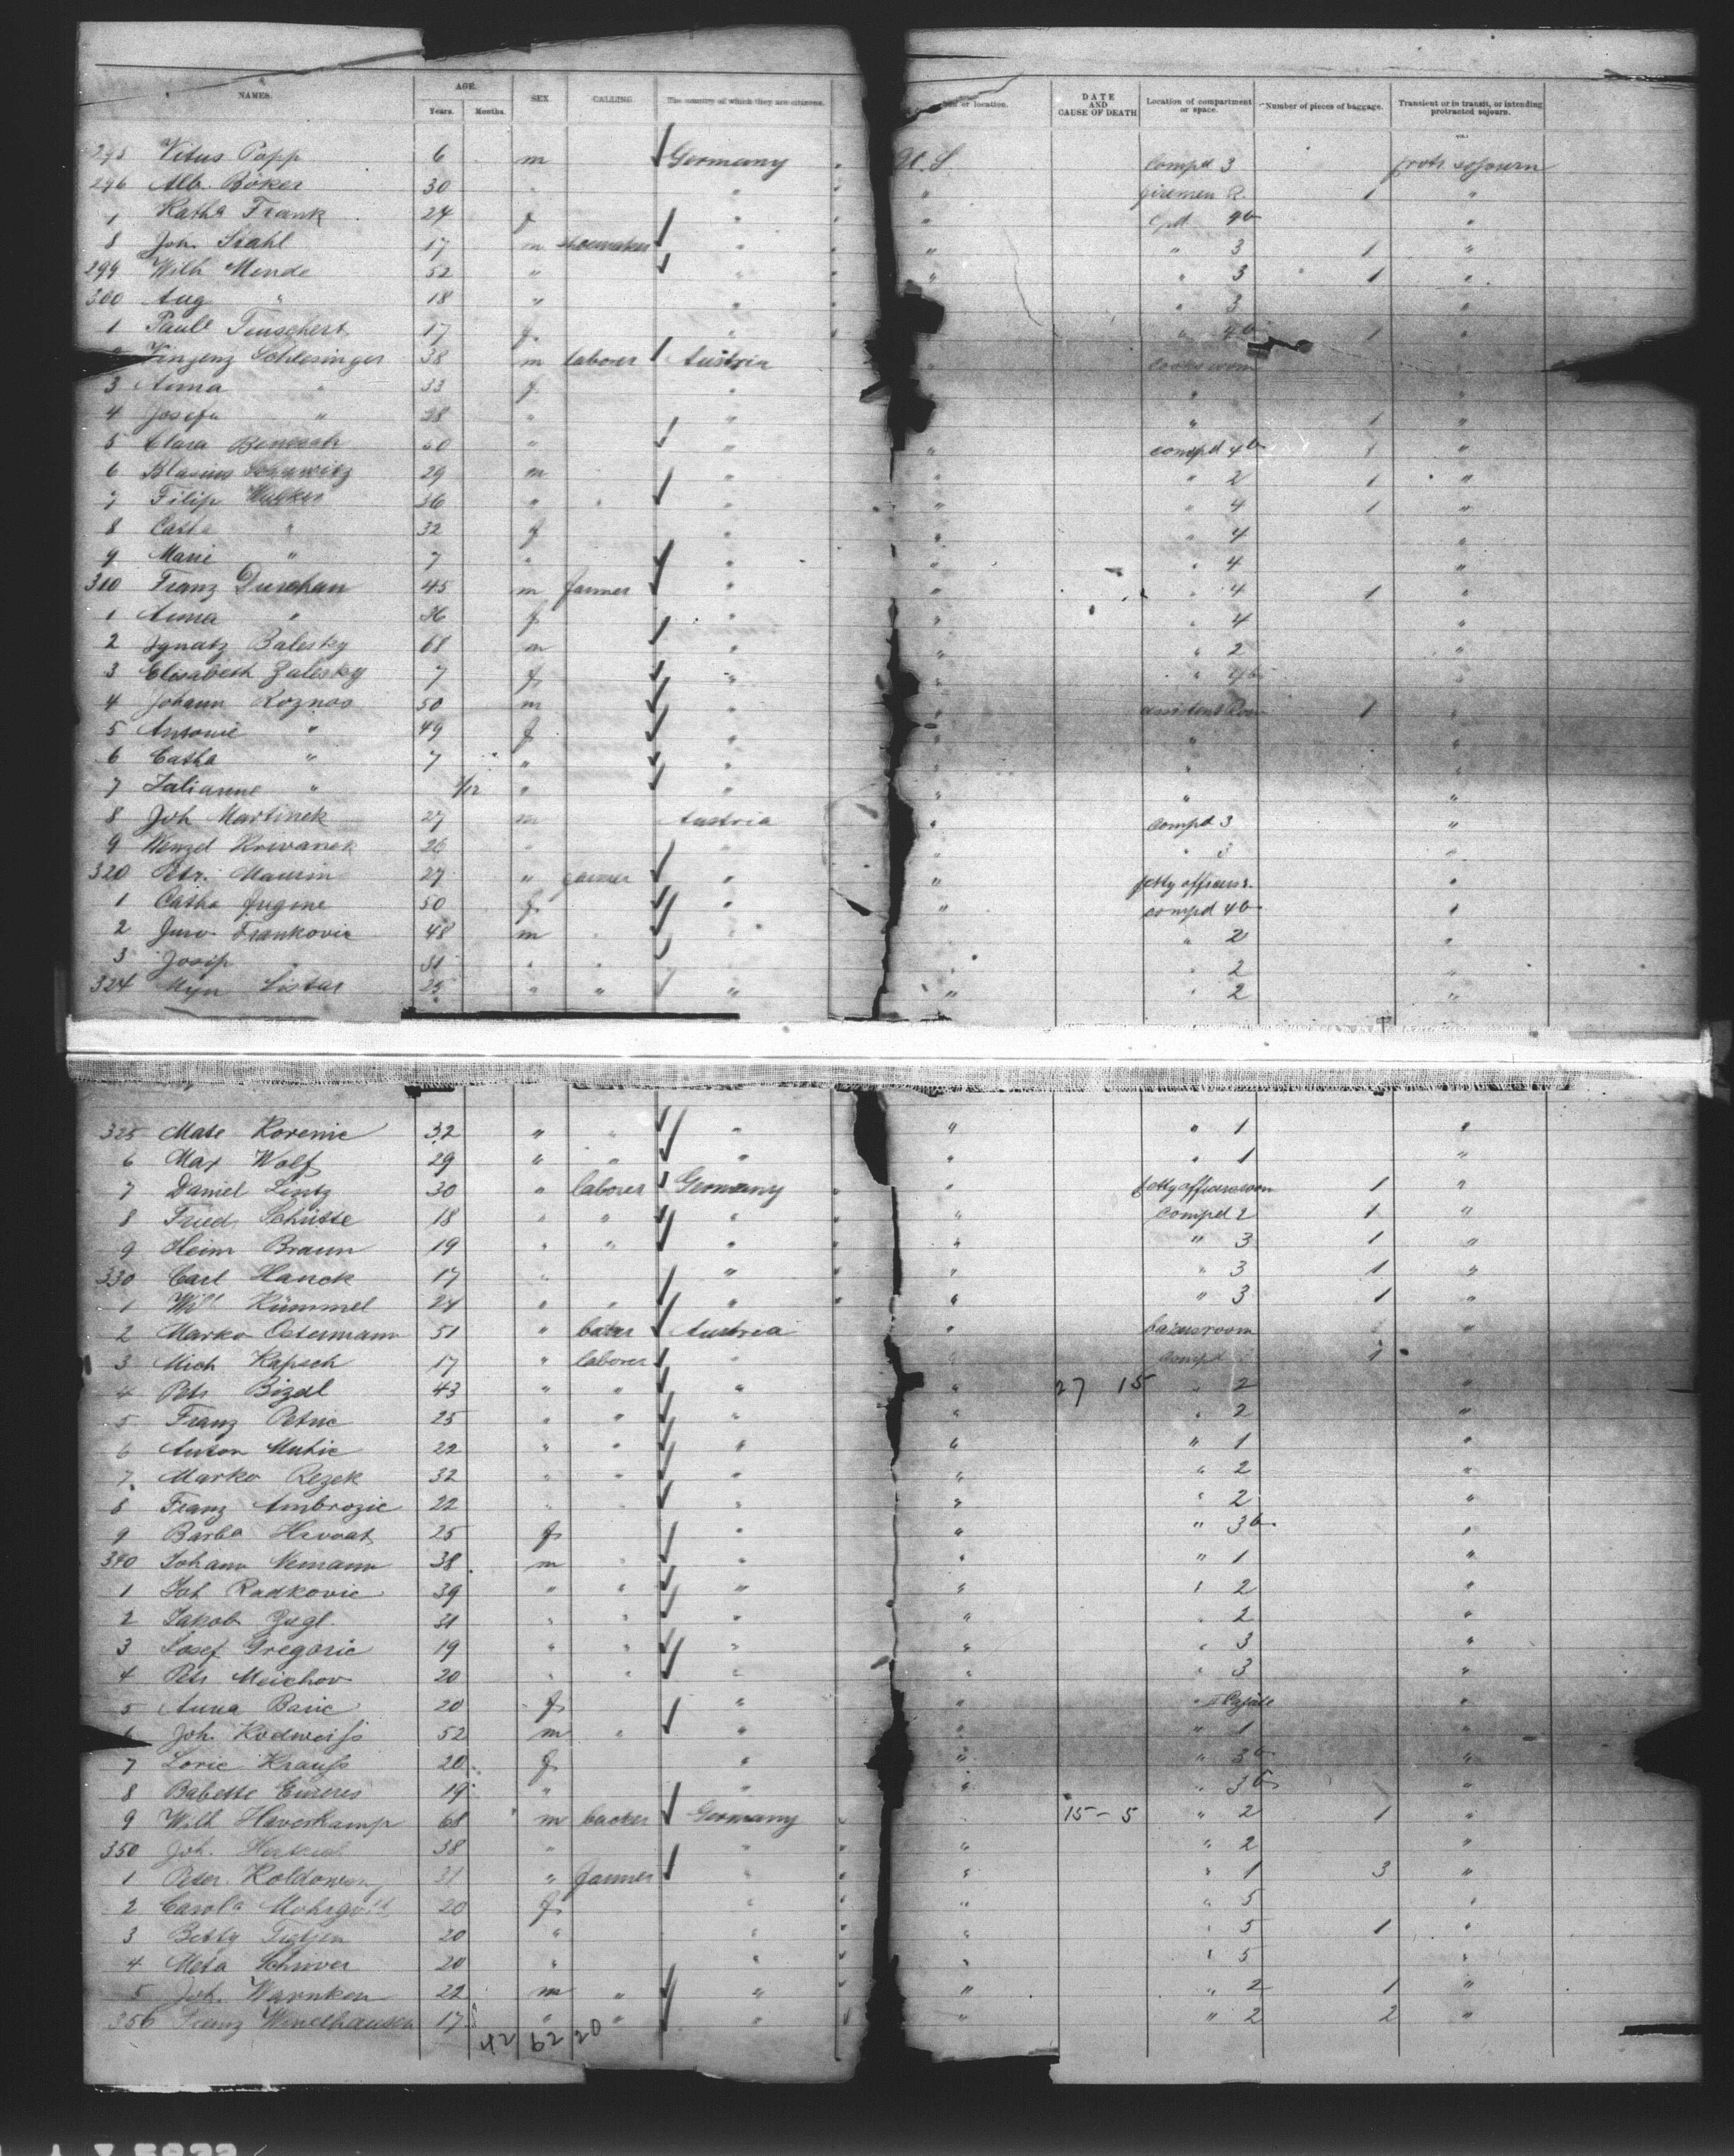 NAMES. AGE. Years. Months. SEX. CALLING. The country of which they are citizens. or location. DATE AND CAUSE OF DEATH Location of compartment or space. Number of pieces of baggage. Transient or in transit, or intending protracted sojourn.
295 Vitus Popp 6 m Germany U. S. Compd 3 protr sojourn
296 Alb. Böker 30 " " " firemen R. 1 "
Katha Frank 24 f " " 4b "
8 Joh. Stahl 17 m shoemaker " " " 3 1 "
299 Wilh Mende 52 " " " " 3 1 "
300 Aug " 18 " " " 3 "
1 17 f " " 4b 1 "
Schlesinger 38 m laborer Austria "
3 Anna " 33 f " " "
4 Josefa " 28 " " " 1 "
5 Clara " " " compd 4b 1 "
6 Blasius 29 m " " " 2 1 "
7 Filip 36 " " " " " 4 1 "
8 Catha " 32 f " " " 4 "
9 Marie " 7 " " " " 4 "
310 Franz 45 m farmer " " " 4 1 "
1 Anna " 36 f " " " 4 "
2 Ignatz Balesky 68 m " " " 2 "
3 Elisabeth Zalesky 7 f " " " 4b "
4 Johann Koznos 50 m " " 1 "
5 Antonie " 49 f " " " "
6 Catha " 7 " " " " "
7 Julianne " /12 " " " " "
8 Joh Martinek 27 m Austria " Compd 3 "
9 Wenzel Krivanek 26 " " " " 3 "
320 Petr. 27 " farmer " " petty officers. "
1 Catha 50 f " " compd 4b "
2 Juro Frankovic 48 m " " " 2 "
3 Josip " 31 " " " " " 2 "
324 Listar 25 " " " " " 2 "
325 Mate Korenic 32 " " " " " 1 "
6 Max Wolf 29 " " " " " 1 "
7 Daniel Lintz 30 " laborer Germany " petty officers room 1 "
8 Fried. Schütte 18 " " " " Compd 2 1 "
9 Heinr Braun 19 " " " " " 3 1 "
330 Carl Hanck 17 " " " " 3 1 "
1 Wilh Kümmel 24 " " " " " 3 1 "
2 Marko Ostermann 51 " baker Austria " bakersroom "
3 Mich Kapsch 17 " laborer " " Compd 1 "
4 Petr Bizal 43 " " " " 27 15 " 2 "
5 Franz Petric 25 " " " " " 2 "
6 Anton Mutic 22 " " " " " 1 "
7 Marko Rezek 32 " " " " " 2 "
8 Franz Ambrozic 22 " " " " " 2 "
9 Barba Hrvoat 25 f " " " 3b "
340 Johann Nemann 38 m " " " " 1 "
1 Joh Radkovic 39 " " " " " 2 "
2 Jakob Zugl 31 " " " " " 2 "
3 Josef Gregoric 19 " " " " " 3 "
4 Petr 20 " " " " " 3 "
5 Anna Basic 20 f " " " "
6 Joh. Kodweiss 52 m " " " " 1 "
7 Krauss 20 f " " " 3b "
8 Babette 19 " " " " 3b "
9 Wilh Haverkamp 68 m backer Germany 15 - 5 " 2 1 "
350 Joh. 38 " " " " 2 "
1 Peter 31 " farmer " " " 1 3 "
2 Carola 20 f " " " 5 "
3 Betty Tietjen 20 " " " " 5 1 "
4 Meta 20 " " " " 5 "
5 Joh. Warnken 22 m " " " " 2 1 "
356 Franz Windhausen 17 " " " " " 2 2 "
42 62 20